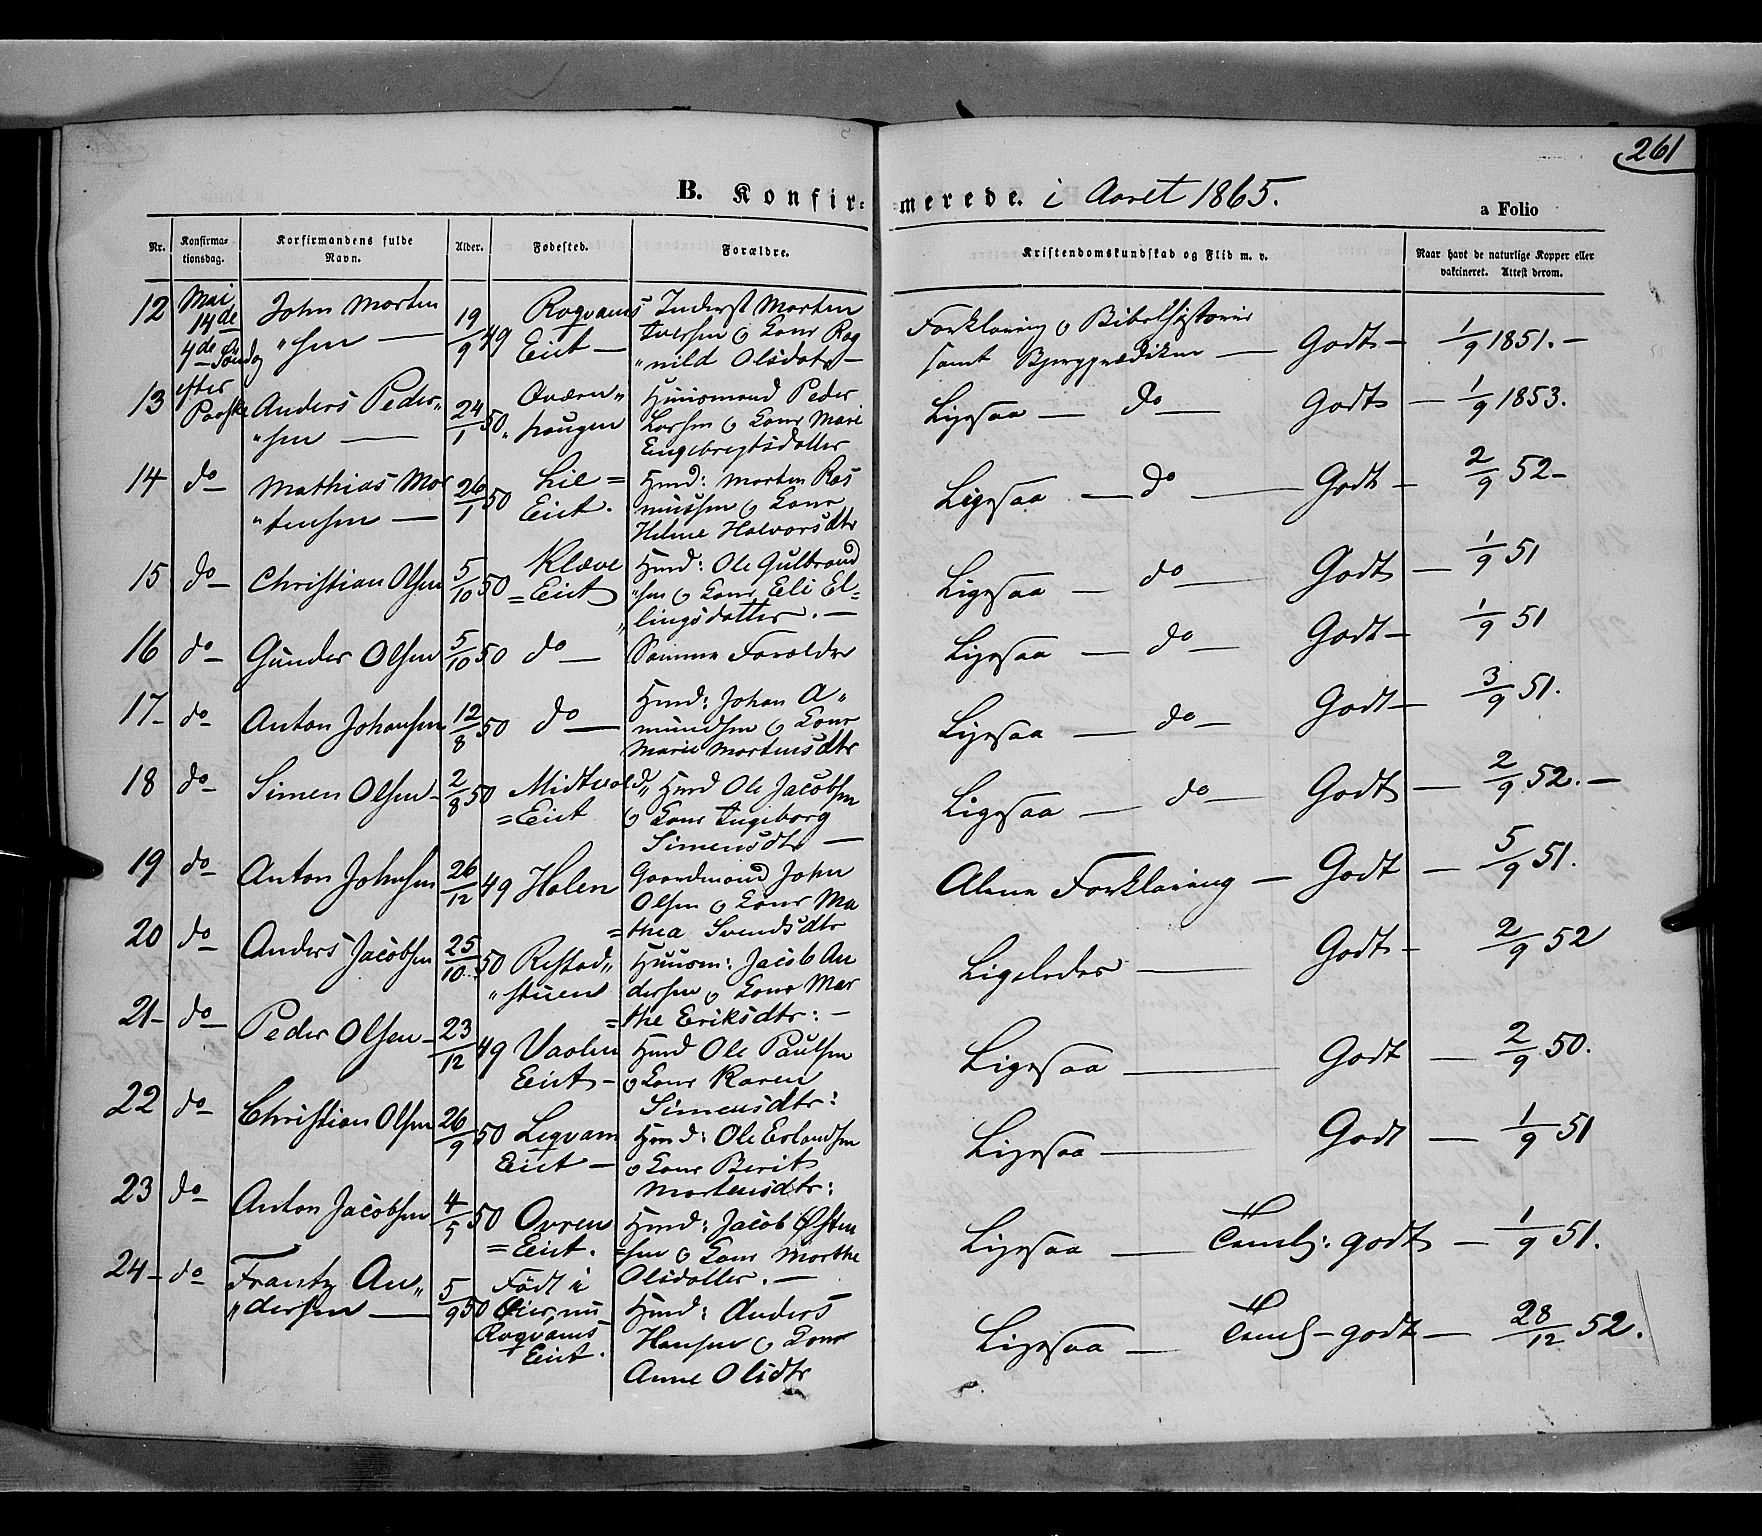 261
B. Konfir-
merede. i Aaret 1865.
a Folio
Nr.
Konfirma-
tionsdag.
Konfirmandens fulde
Navn.
Alder.
Fødested.
Forældre.
Kristendomskundskab og Flid m. v.
Naar havt de naturlige Kopper eller
vaksineret. Attest derom.
12 Mai
14de
4de Søndag
efter
Paaske
John Morten
"sen —
19/9 49
Roqvams
Eiet —
Inderst Morten
Iversen & Kone Rag
"nild Olsdatr —
Forklaring & Bibelhistorie
samt Bjergprædiken — Godt — 1/9 1851. —
13 Anders Peder"
"sen —
24/1 50
Qværn"
"haugen
Huusmand Peder
Larsen & Kone Mari
Engebregtsdatter
Ligesaa — do — Godt — 1/9 1853.
14 do — Mathias Mor
"tensen —
26/1 50
Lie =
Eiet.
Hmd: Morten Ras
mussen & Kone
Helene Halvorsdtr
Ligesaa — do — Godt — 2/9 52 —
15 do — Christian Olsen 5/10 50
Klæve
= Eiet
Hmd: Ole Gulbrand
"sen & Kone Eli El=
"lingsdatter. —
Ligesaa — do — Godt — 1/9 51
16 do — Gunder Olsen 5/10 50 do — Samme Forældre
Ligesaa — do — Godt — 1/9 51
17 — do — Anton Johansen 12/8 50 do —
Hmd: Johan A"
mundsen & Kone
Marie Mortensdtr
Ligesaa — do — Godt — 3/9 51.
18 do — Simen Olsen — 2/8 50
Midtvold"
= Eiet
Hmd Ole Jacobsen
& Kone Ingeborg
Simensdtr —
Ligesaa — do — Godt — 2/9 52. —
19 do — Anton Johnsen 26/12 49 Holen
Gaardmand John
Olsen & Kone Ma
= thea Svendsdtr
Alene Forklaring — Godt — 5/9 51.
20 do — Anders Jacobsen 25/10 50
Restad"
"stuen
Huusm: Jacob An
dersen & Kone Mar
= the Eriksdtr: —
Ligeledes — Godt — 2/9 52
21 — do — Peder Olsen — 23/12 49
Vaolen
Eiet —
Hmd Ole Paulsen
& Kone Karen
Simensdtr:
Ligesaa — Godt — 2/9 50.
22 do — Christian Olsen 26/9 50
Leqvam
Eiet —
Hmd: Ole Erlandsen
& Kone Berit
Mortensdtr:
Ligesaa — Godt — 1/9 51
23 do — Anton Jacobsen 4/5 50
Ovren
= Eiet.
Hmd: Jacob Østen
= sen & Kone Marthe
Olsdatter. —
Ligesaa — Temlj: godt — 1/9 51.
24 — do — Frantz An"
"dersen —
5/9 50
Født i
Øier, nu
Roqvams
Eiet.
Hmd: Anders
Hansen & Kone
Anne Olsdtr
Ligesaa — Teml — godt — 28/12 52.